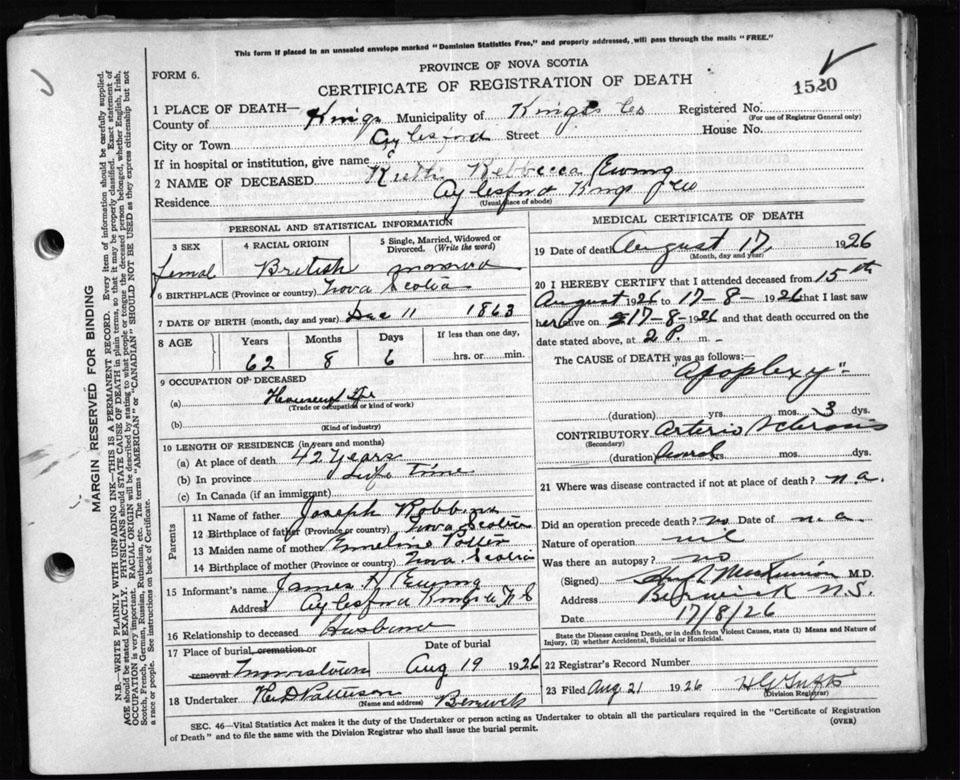 This form if placed in an unsealed envelope marked "Dominion Statistics Free," and properly addressed, will pass through the mails "FREE."
PROVINCE OF NOVA SCOTIA
FORM 6.
CERTIFICATE OF REGISTRATION OF DEATH
1520
1 PLACE OF DEATH—
County of Kings Municipality of Kings Co Registered No.
(For use of Registrar General only)
City or Town Aylesford Street House No.
If in hospital or institution, give name
2 NAME OF DECEASED Ruth Rebbecca Ewing
Residence Aylesford Kings Co
(Usual place of abode)
PERSONAL AND STATISTICAL INFORMATION
3 SEX 4 RACIAL ORIGIN 5 Single, Married, Widowed or Divorced. (Write the word)
Femal British married
6 BIRTHPLACE (Province or country) Nova Scotia
7 DATE OF BIRTH (month, day and year) Dec 11 1863
8 AGE Years Months Days If less than one day,
62 8 6 hrs. or min.
9 OCCUPATION OF DECEASED
(a) Housewife
(Trade or occupation or kind of work)
(b)
(Kind of industry)
10 LENGTH OF RESIDENCE (in years and months)
(a) At place of death 42 years
(b) In province Life time
(c) In Canada (if an immigrant)
Parents
11 Name of father Joseph Robbins
12 Birthplace of father (Province or country) Nova Scotia
13 Maiden name of mother Emeline Potter
14 Birthplace of mother (Province or country) Nova Scotia
15 Informant's name James Ewing
Address Aylesford Kings Co N S
16 Relationship to deceased Husband
17 Place of burial, cremation or removal Date of burial
Morristown Aug 19 1926
18 Undertaker Berwick
(Name and address)
MEDICAL CERTIFICATE OF DEATH
19 Date of death August 17, 1926
(Month, day and year)
20 I HEREBY CERTIFY that I attended deceased from 15th
August 1926 to 17-8-1926 that I last saw
her alive on 17-8-1926 and that death occurred on the
date stated above, at 2 P. m.
The CAUSE OF DEATH was as follows:—
"Apoplexy"
(duration) yrs. mos. 3 dys.
CONTRIBUTORY Arterio Sclerosis
(Secondary)
(duration) Several yrs. mos. dys.
21 Where was disease contracted if not at place of death? n a.
Did an operation precede death? no Date of n.a.
Nature of operation nil
Was there an autopsy? no
(Signed) M.D.
Address Berwick N.S.
17/8/26
State the Disease causing Death, or in death from Violent Causes, state (1) Means and Nature of
Injury, (2) whether Accidental, Suicidal or Homicidal.
22 Registrar's Record Number
23 Filed Aug 21 1926
(Division Registrar)
SEC. 46—Vital Statistics Act makes it the duty of the Undertaker or person acting as Undertaker to obtain all the particulars required in the "Certificate of Registration
of Death" and to file the same with the Division Registrar who shall issue the burial permit. (OVER)
MARGIN RESERVED FOR BINDING
N.B.—WRITE PLAINLY WITH UNFADING INK—THIS IS A PERMANENT RECORD. Every item of information should be carefully supplied.
AGE should be stated EXACTLY. PHYSICIANS should STATE CAUSE OF DEATH in plain terms, so that it may be properly classified. Exact statement of
OCCUPATION is very important. RACIAL ORIGIN will be described by stating to what people or tongue the deceased person belonged, whether English, Irish,
Scotch, French, German, Russian, Ruthenian, etc. The terms "AMERICAN" or "CANADIAN" SHOULD NOT BE USED as they express citizenship but not
a race or people. See instructions on back of Certificate.